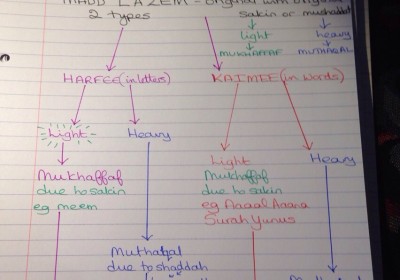 MADD LAZEM - original with original
2 types
sakin or mushaddad
light
heavy
MUKHAFFAF
MUTHAQAL
HARFEE (in letters)
KALMEE (in words)
Light
Heavy
Mukhaffaf
due to sakin
eg meem
Light
Mukhaffaf
due to sakin
eg Aaaal Aaana
Surah Yunus
Heavy
Muthaqal
due to shaddah